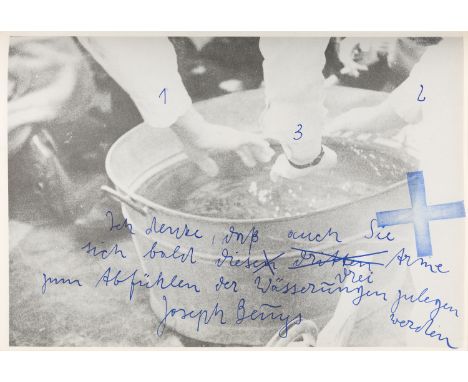 1
2
3
Ich denke, daß auch Sie
sich bald diese dritten Arme
drei
zum Abfühlen der Wässerungen zulegen
werden
Joseph Beuys